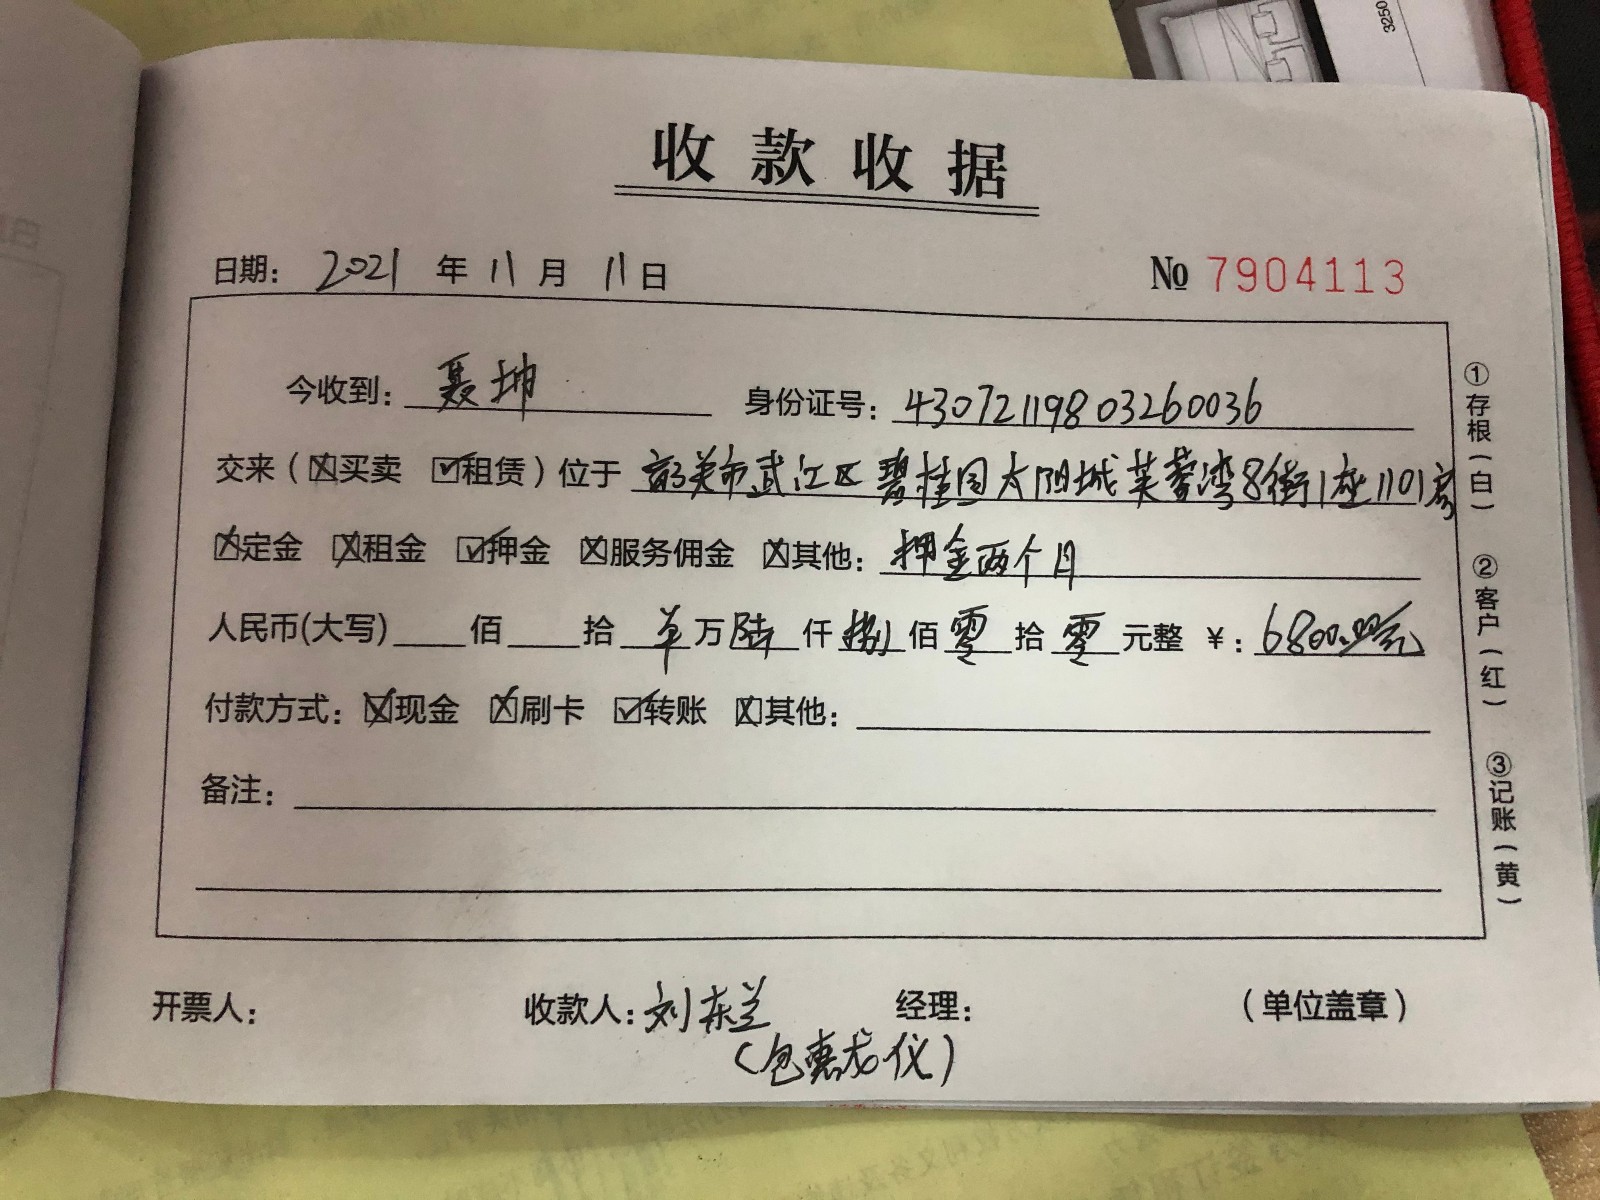 3250
收款收据
日期： 2021 年 11 月 11 日 № 7904113
今收到： 聂坤 身份证号： 43072119803260036
交来（☒买卖 ☑租赁）位于 韶关市武江区碧桂园太阳城芙蓉湾8街1座1101房
☒定金 ☒租金 ☑押金 ☒服务佣金 ☒其他： 押金两个月
人民币(大写)____佰____拾 单 万 陆 仟 捌 佰 零 拾 零 元整 ￥： 6800.00元
付款方式： ☒现金 ☒刷卡 ☑转账 ☒其他：
备注：
开票人： 收款人： 刘东兰 经理： （单位盖章）
（包惠龙代）
①存根（白）
②客户（红）
③记账（黄）